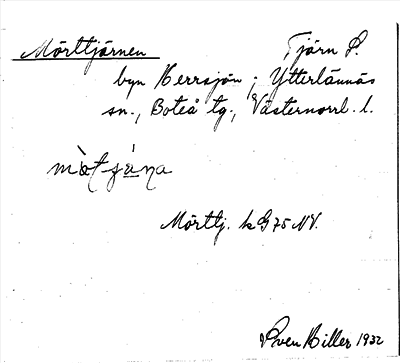 Mörttjärnen Tjärn S.
byn Herrsjön; Ytterlännäs
sn., Boteå tg., Västernorrl. l.
Mörttj. k G 75 NV.
Sven Hiller 1932